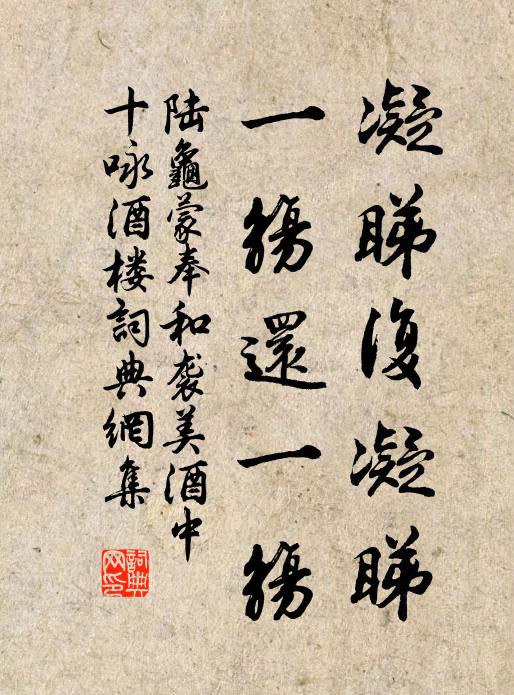 凝睇復凝睇
一觴還一觴
陸龜蒙奉和袭美酒中
十咏酒楼詞典網集
詞典
网印